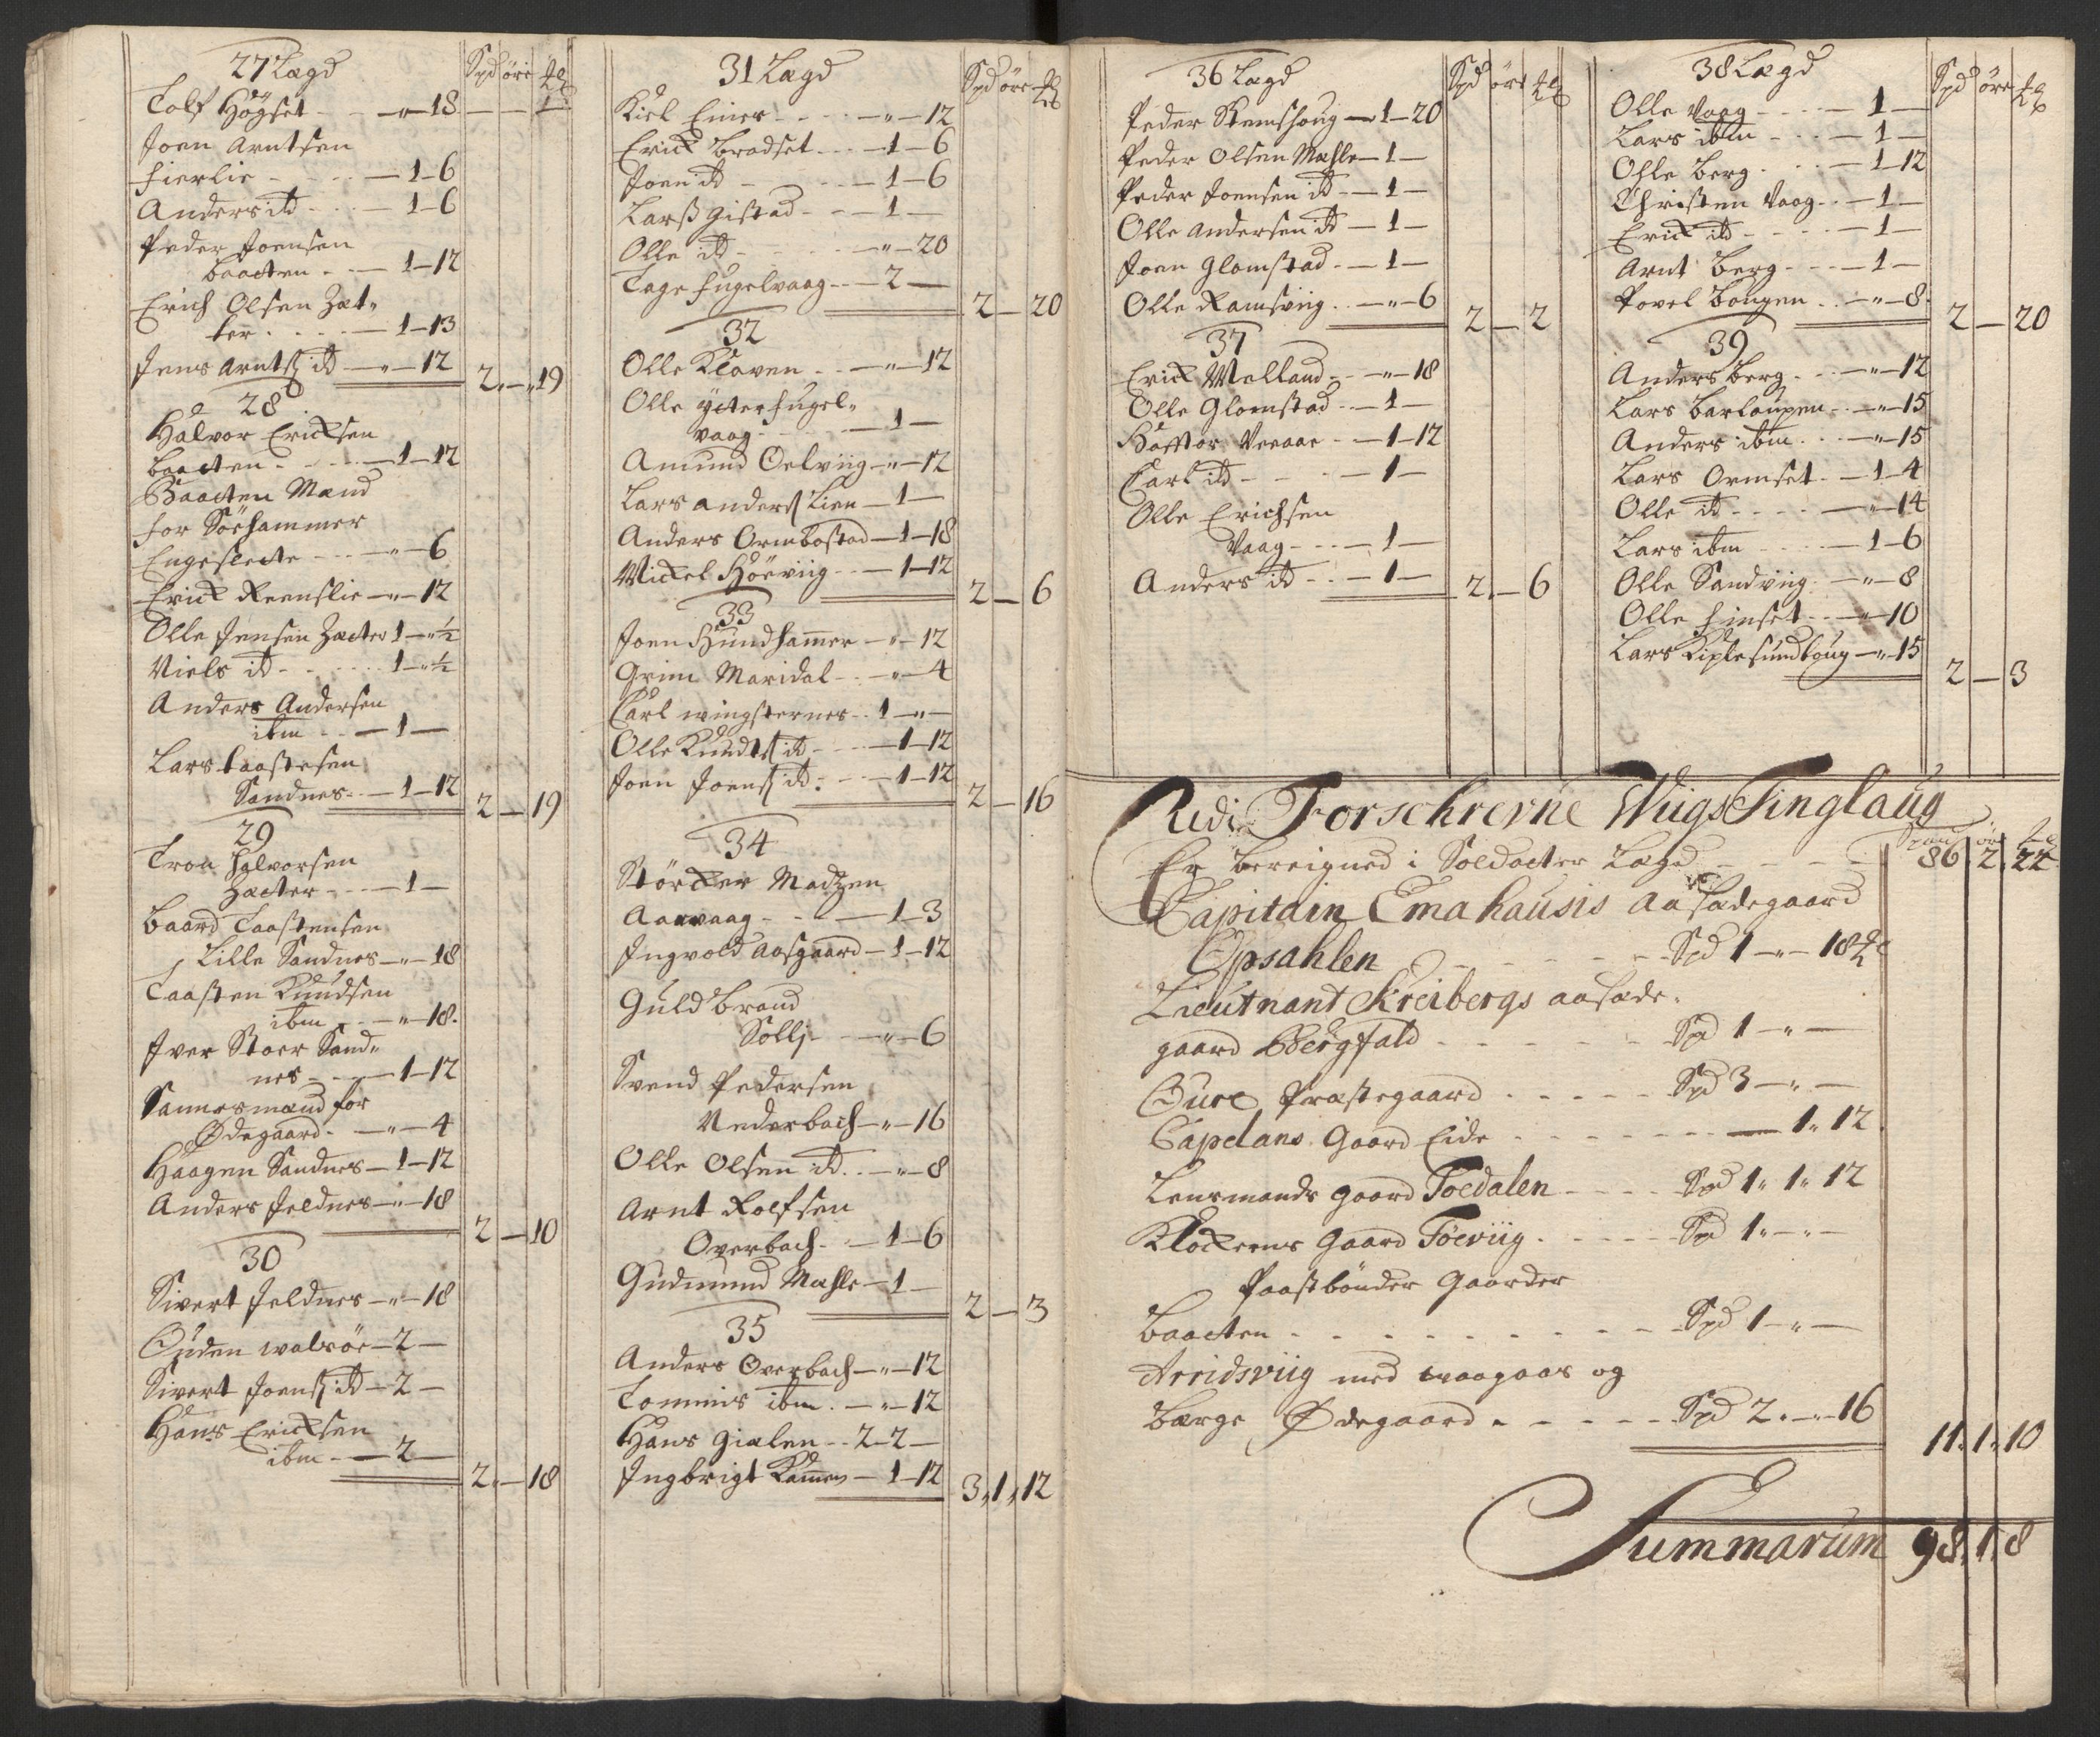 27 Lægd Spd öre ℔
Tolf Högset - - " - 18 - - 1
Joen Arntsen
Fierlie - - - 1 - 6
Anders itd - - 1 - 6
Peder Joensen
baacten - - 1 - 12
Erich Olsen Zæt-
ter - - - 1 - 13
Jens Arntß itd - " - 12 2 - " 19
28
Halvor Ericksen
baacten - - - 1 - 12
Baacten Mænd
for Sörhammer
Engeslecte - - - " - 6
Erick Reenslie - " - 12
Olle Jensen Zæcter 1 - " ½
Niels itd - - - 1 - " ½
Anders Andersen
ibm - - 1 -
Lars Taastesen
Sandnes - - 1 - 12 2 - 19
29
Tron Halvorsen
Zæcter - - - 1 -
Baard Taastensen
Lille Sandnes - " - 18
Taasten Knudsen
ibm - - " - 18
Iver Stoer Sand-
nes - - - 1 - 12
Sannesmænd for
Ødegaard - - " - 4
Haagen Sandnes - 1 - 12
Anders Jeldnes - " - 18 2 - 10
30
Sivert Jeldnes - " - 18
Ouden walsöe - 2 -
Sivert Joensß itd - 2 -
Hans Ericksen
ibm - - 2 - 2 " - 18
31 Lægd Spd öre ℔
Kiel Einer - - - " - 12
Erick Bradset - - - 1 - 6
Joen itd - - - 1 - 6
Larß Gistad - - 1 -
Olle itd - - - " - 20
Tage Fugelvaag - - 2 - 2 - 20
32
Olle Kloven - - " - 12
Olle ÿcter Fugel-
vaag - - - 1 -
Amund Oelviig - " - 12
Lars Anderß Lien - 1 -
Anders Ormbostad - 1 - 18
Mickel Höeviig - - 1 - 12 2 - 6
33
Joen Hundhammer - " - 12
Grim Maridal - - " - 4
Carl wingsternes - - 1 - " -
Olle Knudtß itd - - 1 - 12
Joen Joensß itd - - 1 - 12 2 - 16
34
Störcker Madtzen
Aarvaag - - - 1 - 3
Ingvold Aasgaard - 1 - 12
Guldbrand
Sollj - - " - 6
Svend Pedersen
Nederbach - " - 16
Olle Olsen itd - - " - 8
Arnt Rolfsen
Overbach - - 1 - 6
Gudmund Mæhle - 1 - 2 - 3
35
Anders Overbach - " - 12
Tommis ibm - - " - 12
Hans Gialen - - 2 - 2 -
Ingbrigt Kammen - 1 - 12 3 " 1 " 12
36 Lægd Spd öre ℔
Peder Stemshoug - 1 - 20
Peder Olsen Mæhle - 1 -
Peder Joensen itd - - 1 -
Olle Andersen itd - 1 -
Joen Glomstad - - 1 -
Olle Ramsviig - - " - 6 2 - 2
37
Erick Melland - - " - 18
Olle Glomstad - - 1 -
Haffor Veraae - - 1 - 12
Carl itd - - - 1 -
Olle Erichsen
Vaag - - - 1 -
Anders itd - - - 1 - 2 - 6
38 Lægd Spd öre ℔
Olle Vaag - - - 1 -
Lars ibm - - - 1 -
Ohle Berg - - - 1 - 12
Christen Vaag - - 1 -
Erick itd - - - 1 -
Arnt Berg - - - 1 -
Povel Bougen - - " - 8 2 - 20
39
Anders Berg - - - " - 12
Lars Barloupen - - " - 15
Anders ibm - - - " - 15
Lars Ormset - - 1 - 4
Olle itd - - - - " - 14
Lars ibm - - - 1 - 6
Olle Sandviig - " - 8
Olle Finset - - " - 10
Lars Kiplesundboug - " - 15 2 - 3
Udi Forschrevne Wiigs Tinglaug
Er Bereigned i Soldacter Lægd - - - 86 " 2 " 22
Capitain Emahausis Aasædegaard
Opsahlen - - - - Spd 1 - " - 18 ℔
Lieutnant Kreibergs aasæde-
gaard Bergfald - - - - Spd 1 - " -
Oure Præstegaard - - - - Spd 3 - " -
Capelans Gaard Eide - - - - 1 " 12
Lensmands Gaard Toedalen - - - Spd 1 " 1 " 12
Klockerens Gaard Töeviig - - - Spd 1 " - " -
Paastbönder Gaarder
Baacten - - - - - - - Spd 1 - " -
Arridsviig med waagaas og
Berge Ødegaard - - - - Spd 2 " - " - 16 11 " 1 " 10
Summarum 98 " 1 " 8